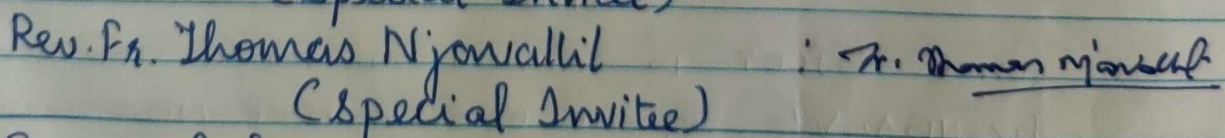 Rev. Fr. Thomas Njowallil : Fr. Thomas
(Special Invitee)